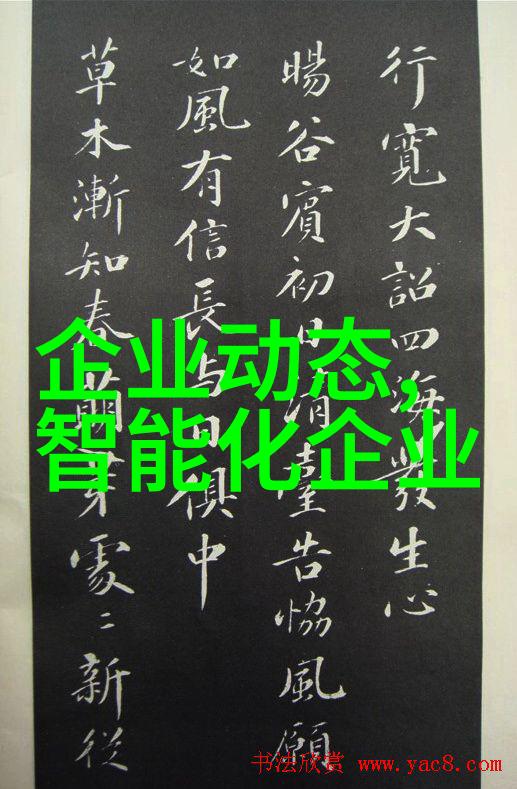 行寬大詔四海發生心
暘谷賓初日清臺告恊風願
如風有信長與日俱中
草木漸知春萌芽處〻新從
企业动态,
智能化企业
书法欣赏 www.yac8.com